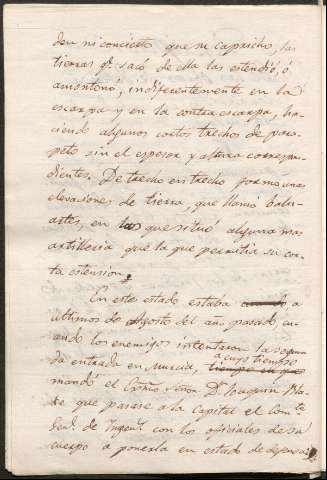 den ni concierto que su capricho, las
tierras qe. sacó de ella las estendió, ó
amontonó, indiferentemente en la
escarpa y en la contra escarpa, ha-
ciendo algunos cortos trechos de para-
peto sin el espesor y altura correspon-
dientes. De trecho en trecho formó unas
elevaciones de tierra, que llamó balu-
artes, en los que situó alguna mas
artilleria que la que permitia su cor-
ta estension.
En este estado estaba a
ultimos de Agosto del año pasado, cu-
ando los enemigos intentaron la segun-
da entrada en Murcia, a cuyo tiempo
mandó el Exmo. Señor Dn. Joaquin Bla-
ke que pasase a la Capital el Comte.
Genl. de Ingens. con los oficiales de su
cuerpo a ponerla en estado de defensa